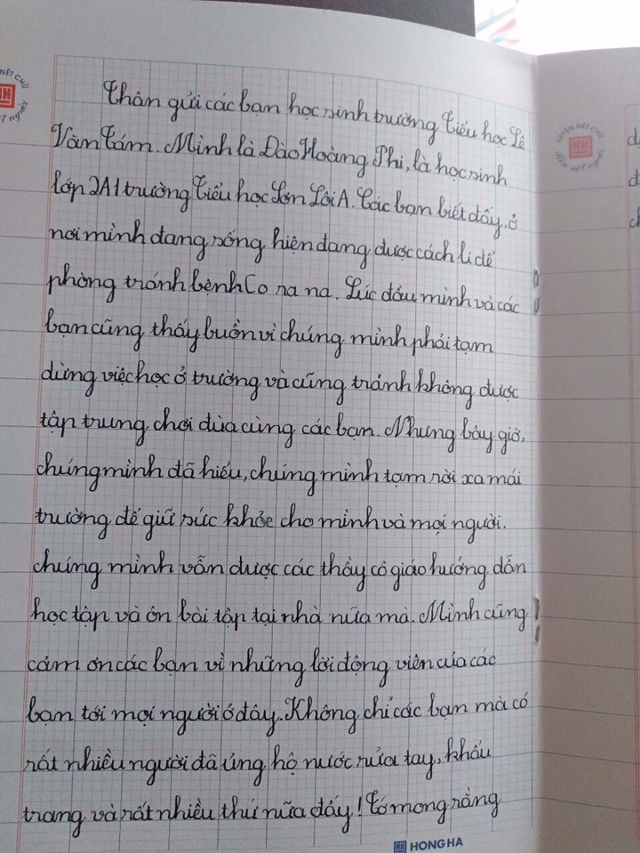 Thân gửi các bạn học sinh trường Tiểu học Lê
Văn Tám. Mình là Đào Hoàng Phi, là học sinh
lớp 2A1 trường Tiểu học Sơn Lôi A. Các bạn biết đấy, ở
nơi mình đang sống hiện đang được cách li để
phòng tránh bệnh Co ro na. Lúc đầu mình và các
bạn cũng thấy buồn vì chúng mình phải tạm
dừng việc học ở trường và cũng tránh không được
tập trung chơi đùa cùng các bạn. Nhưng bây giờ,
chúng mình đã hiểu, chúng mình tạm rời xa mái
trường để giữ sức khỏe cho mình và mọi người.
chúng mình vẫn được các thầy cô giáo hướng dẫn
học tập và ôn bài tập tại nhà nữa mà. Mình cũng
cảm ơn các bạn vì những lời động viên của các
bạn tới mọi người ở đây. Không chỉ các bạn mà có
rất nhiều người đã ủng hộ nước rửa tay, khẩu
trang và rất nhiều thứ nữa đấy! Tớ mong rằng
HONG HA